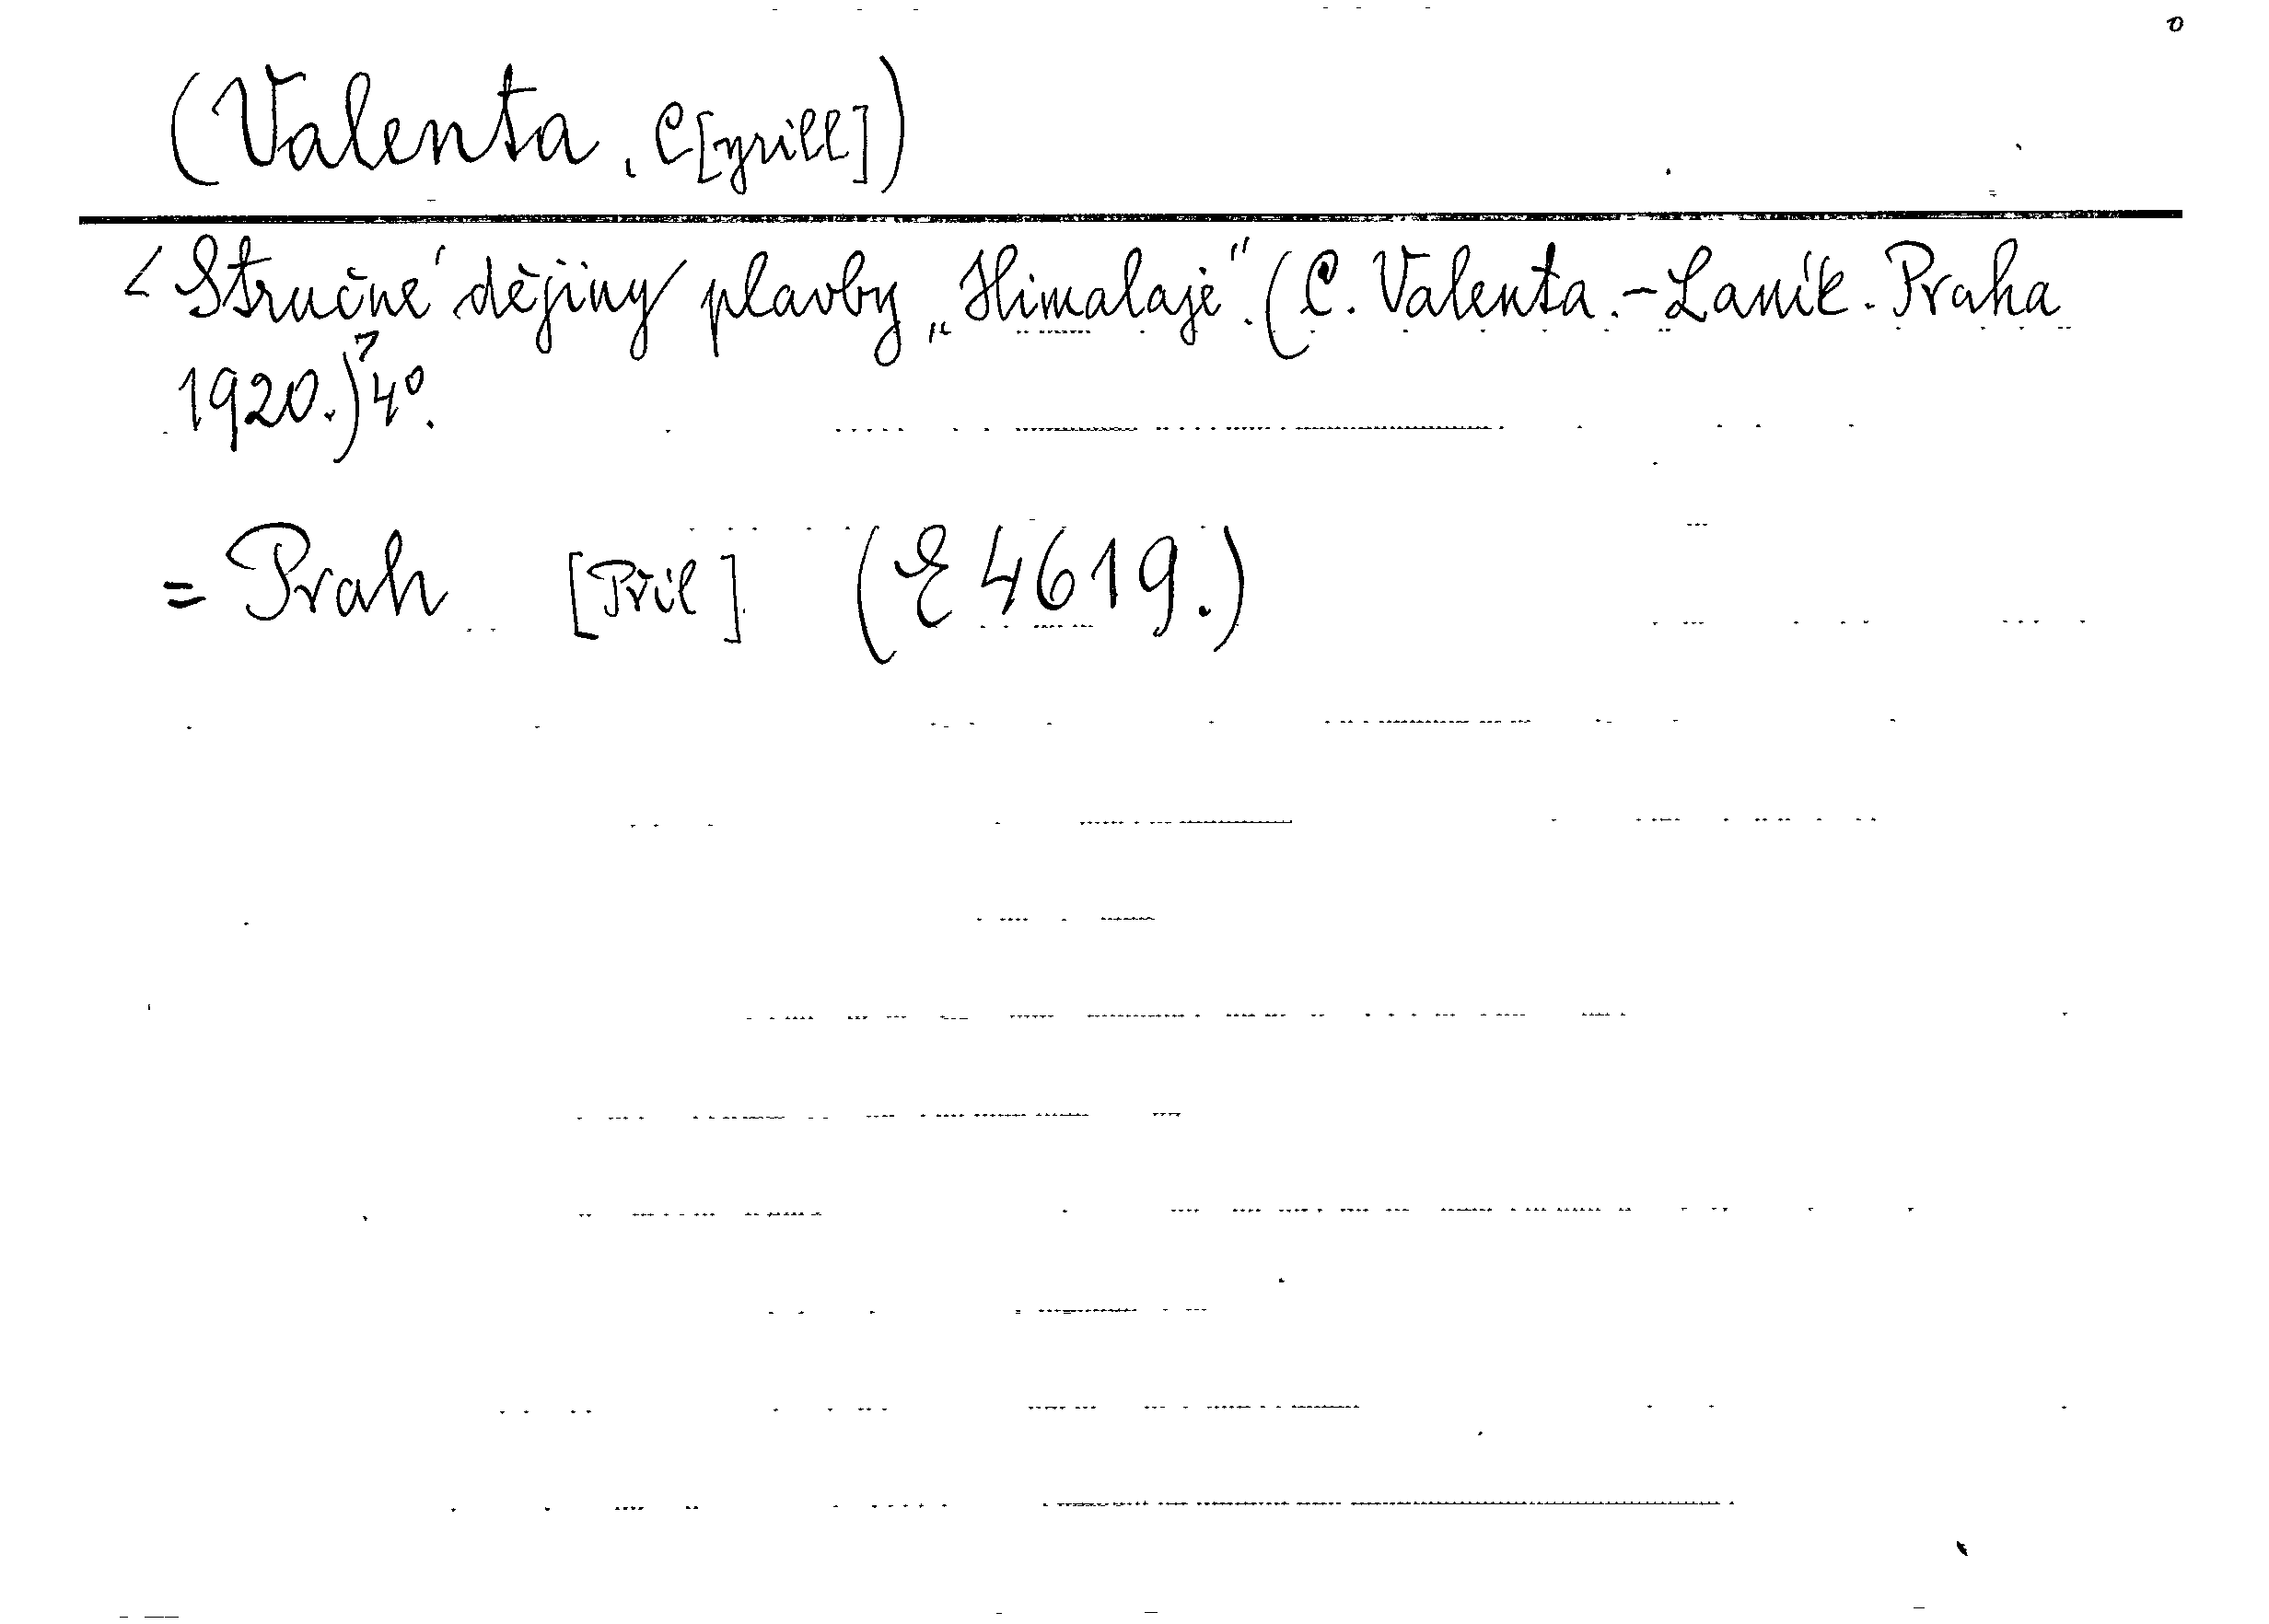 o
(Valenta, C[yrill])
<Stručné dějiny plavby „Himalaje". (C. Valenta.-Laník. Praha
1920.)> 4°.
= Prah [Příl] (E 4619.)